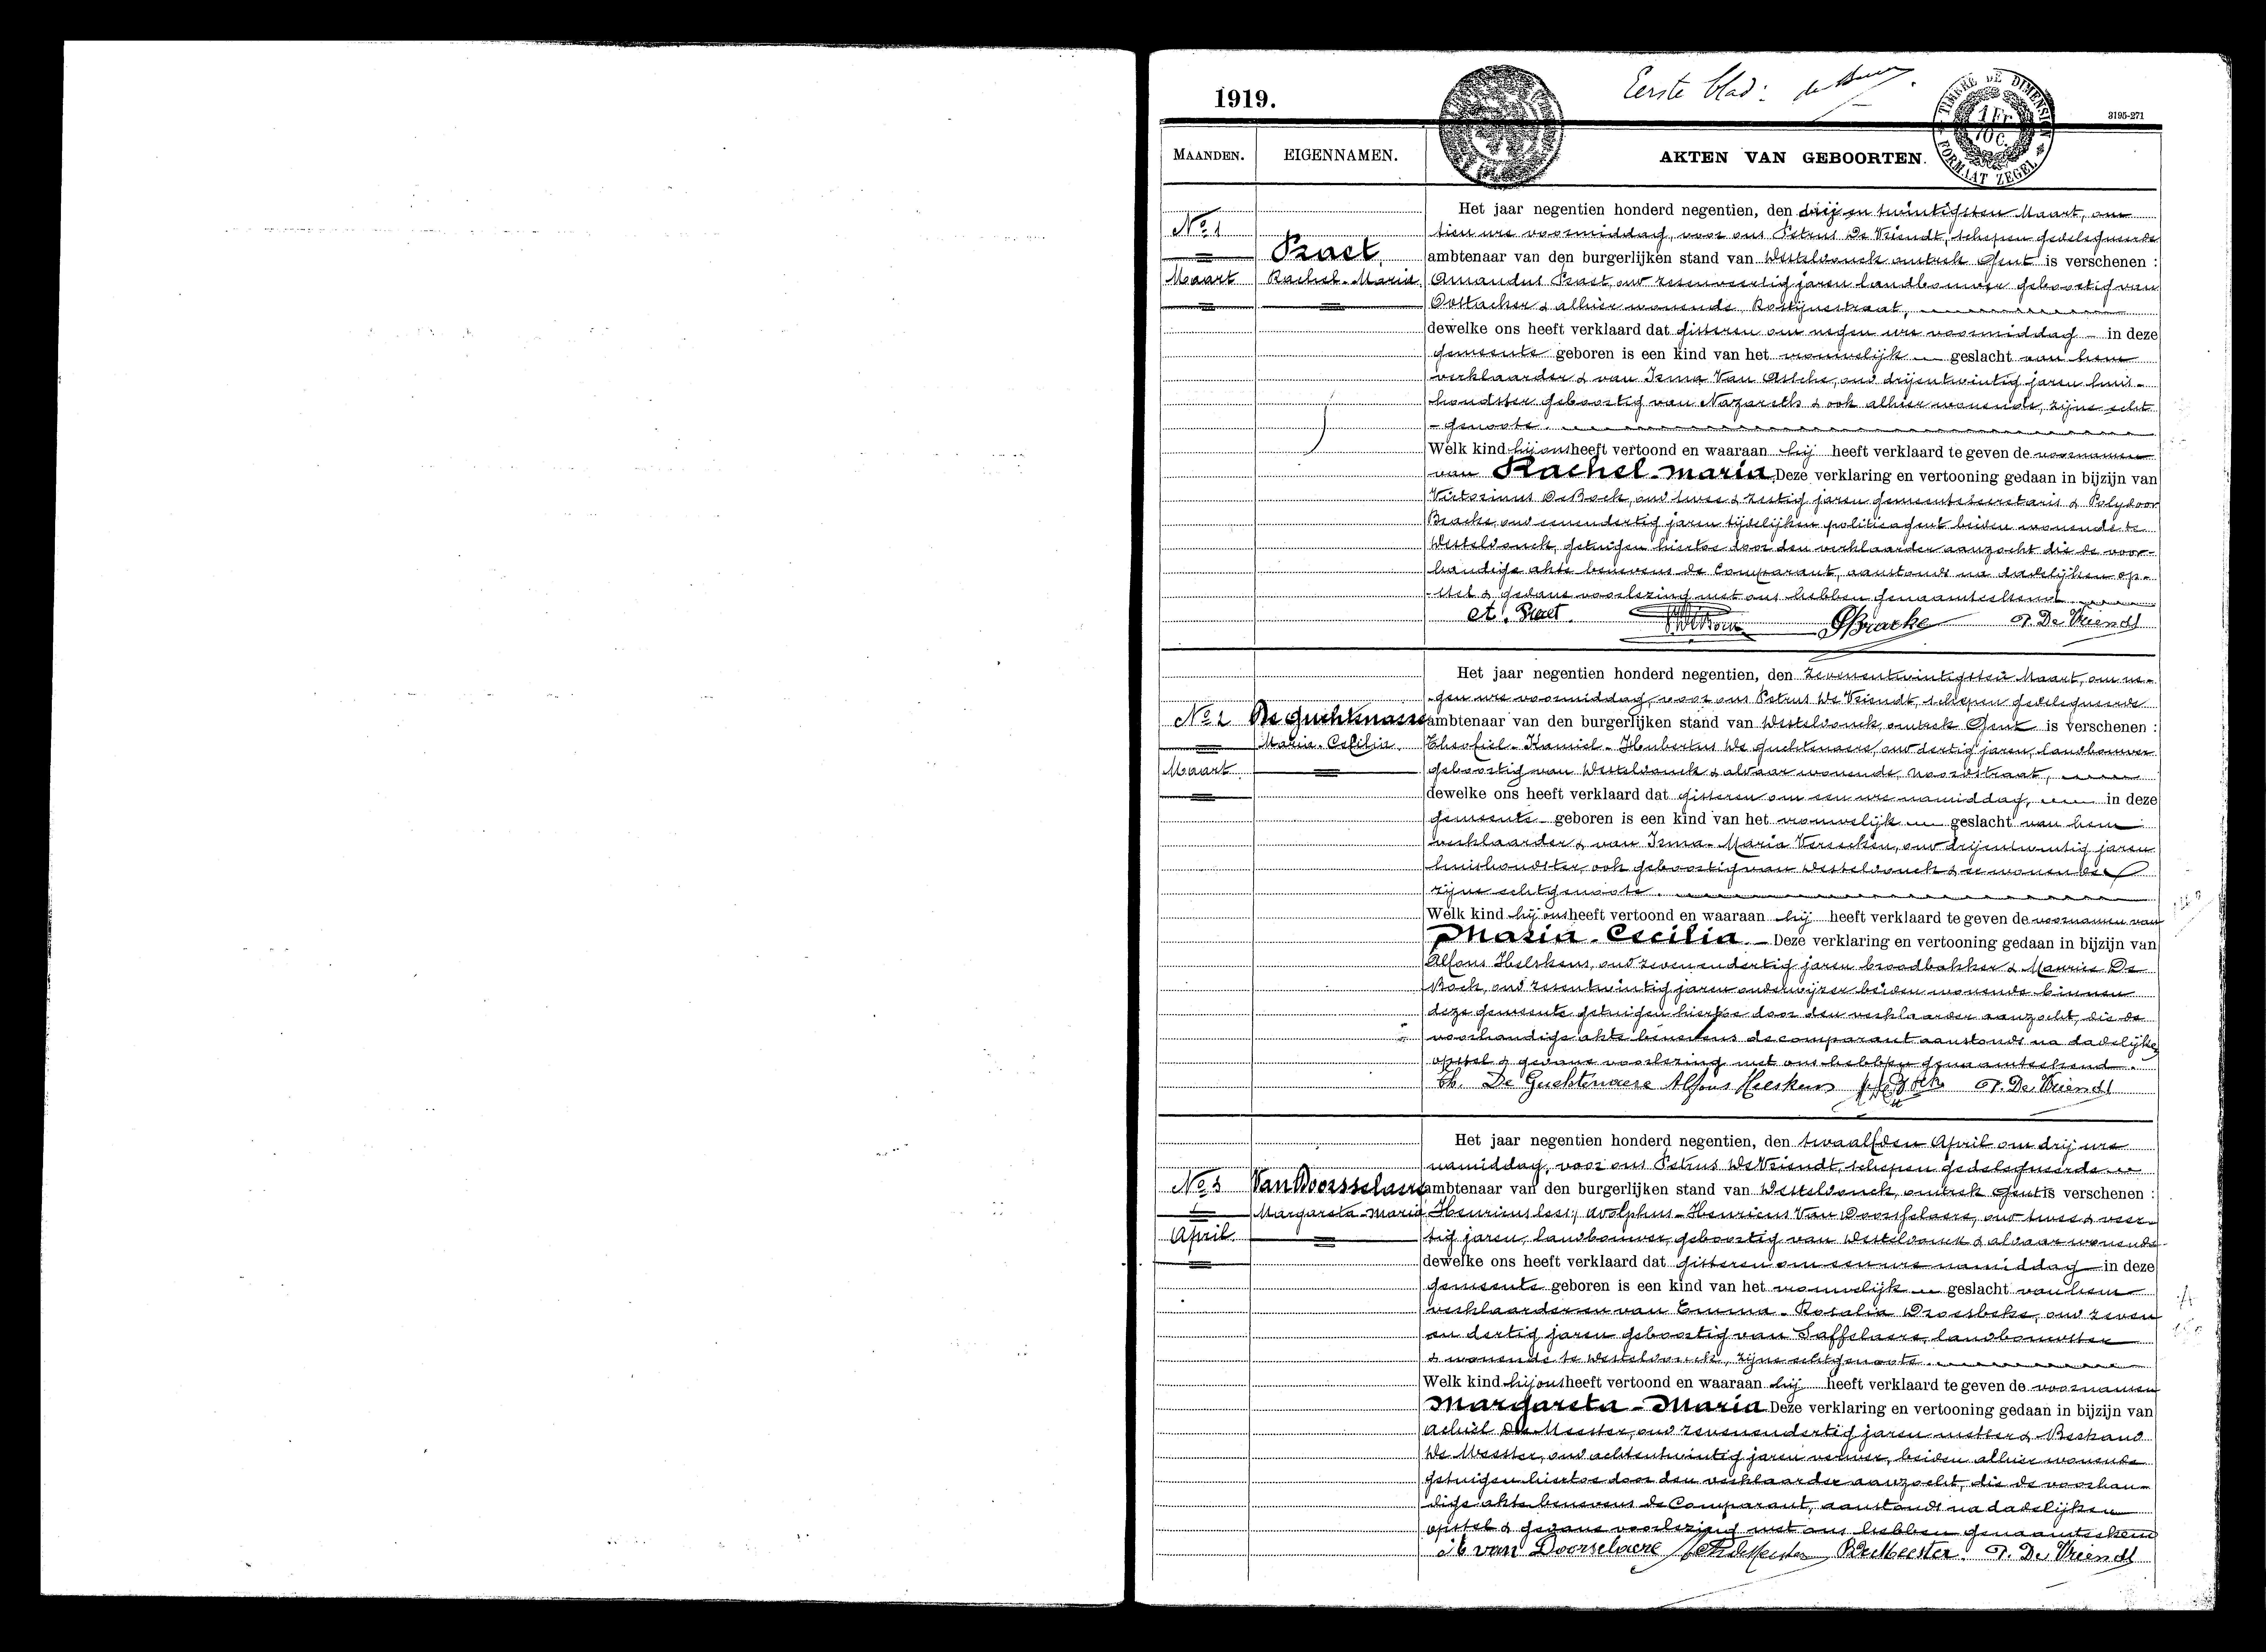 1919.
Eerste blad:
TIMBRE DE DIMENSION
1 Fr
10 c.
FORMAAT ZEGEL
3195-271
MAANDEN.
EIGENNAMEN.
AKTEN VAN GEBOORTEN.
No 1
Maart
Praet
Rachel-Maria
Het jaar negentien honderd negentien, den drij en twintigsten Maart, om
tien ure voormiddag, voor ons Petrus De Vriendt, schepen gedelegueerde
ambtenaar van den burgerlijken stand van Westeldonck omtrek Gent is verschenen :
Amandus Praet, oud zesenveertig jaren landbouwer geboortig van
Oostacker & alhier wonende Rostijnestraat,
dewelke ons heeft verklaard dat gisteren om negen ure voormiddag in deze
gemeente geboren is een kind van het vrouwelijk geslacht van hem
verklaarder & van Irma Van Assche, oud drijentwintig jaren huis-
houdster geboortig van Nazareth & ook alhier wonende, zijne echt
-genoote.
Welk kind hij ons heeft vertoond en waaraan hij heeft verklaard te geven de voornamen
van Rachel-Maria Deze verklaring en vertooning gedaan in bijzijn van
Victorinus De Bock, oud twee & zestig jaren gemeentesecretaris & Polydoor
Bracke, oud eenendertig jaren tijdelijken politieagent beiden wonende te
Westeldonck, getuigen hiertoe door den verklaarder aanzocht die de voor-
handige akte benevens de Comparant, aanstonds na dadelijken op-
-stel & gedane voorlezing met ons hebben genaamteekend
A. Praet. PBracke P. De Vriendt
No 2
Maart
De Guchtenaere
Maria-Cecilia
Het jaar negentien honderd negentien, den zevenentwintigsten Maart, om ne-
-gen ure voormiddag, voor ons Petrus De Vriendt, schepen gedelegueerde
ambtenaar van den burgerlijken stand van Westeldonck, omtrek Gent is verschenen :
Theofiel-Kamiel-Hubertus De Guchtenaere, oud dertig jaren, landbouwer
geboortig van Westeldonck & aldaar wonende, Noordstraat,
dewelke ons heeft verklaard dat gisteren om een ure namiddag, in deze
gemeente geboren is een kind van het vrouwelijk geslacht van hem
verklaarder & van Irma-Maria Vereecken, oud drijentwintig jaren
huishoudster, ook geboortig van Westeldonck & er wonende
zijne echtgenoote.
Welk kind hij ons heeft vertoond en waaraan hij heeft verklaard te geven de voornamen van
Maria-Cecilia. Deze verklaring en vertooning gedaan in bijzijn van
Alfons Heleskens, oud zevenendertig jaren broodbakker & Maurice De
Bock, oud zesentwintig jaren onderwijzer beiden wonende binnen
deze gemeente getuigen hiertoe door den verklaarder aanzocht, die de
voorhandige akte benevens de comparant aanstonds na dadelijken
opstel & gedane voorlezing met ons hebben genaamteekend.
Th. De Guchtenaere Alfons P. De Vriendt
No 3
April
Van Doorsselaere
Margareta-Maria
Het jaar negentien honderd negentien, den twaalfden April om drij ure
namiddag, voor ons Petrus De Vriendt, schepen gedelegueerde
ambtenaar van den burgerlijken stand van Westeldonck, omtrek Gent is verschenen :
Henricus lees: Adolphus-Henricus Van Doorsselaere, oud twee & veer-
tig jaren, landbouwer, geboortig van Westeldonck & aldaar wonende
dewelke ons heeft verklaard dat gisteren om een ure namiddag in deze
gemeente geboren is een kind van het vrouwelijk geslacht van hem
verklaarder en van Emma-Rosalia Droesbeke, oud zeven
en dertig jaren geboortig van Saffelaere, landbouwster
& wonende te Westeldonck, zijne echtgenoote
Welk kind hij ons heeft vertoond en waaraan hij heeft verklaard te geven de voornamen
Margareta-Maria Deze verklaring en vertooning gedaan in bijzijn van
Achiel De Meester, oud zevenendertig jaren metser & Bertrand
De Meester, oud achtentwintig jaren verwer, beiden alhier wonende
getuigen hiertoe door den verklaarder aanzocht, die de voorhan-
dige akte benevens de Comparant, aanstonds na dadelijken
opstel & gedane voorlezing met ons hebben genaamteekend
van Doorselaere BDeMeester. P. De Vriendt